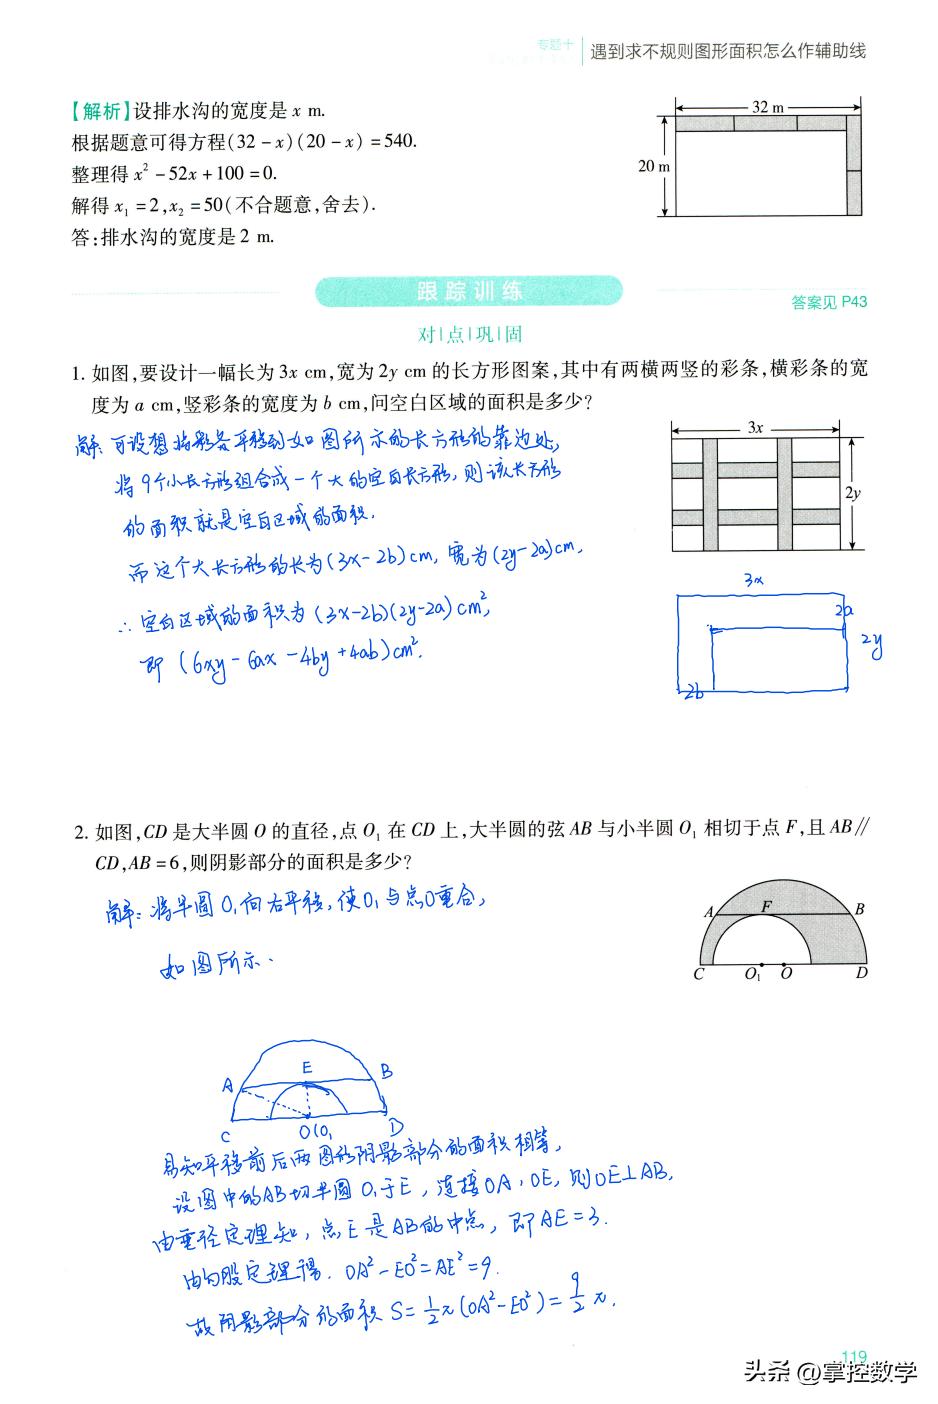 专题十 遇到求不规则图形面积怎么作辅助线
【解析】设排水沟的宽度是 x m.
根据题意可得方程(32 - x)(20 - x) = 540.
整理得 x² - 52x + 100 = 0.
解得 x₁ = 2, x₂ = 50(不合题意,舍去).
答:排水沟的宽度是 2 m.
32 m
20 m
跟踪训练
答案见 P43
对|点|巩|固
1. 如图,要设计一幅长为 3x cm,宽为 2y cm 的长方形图案,其中有两横两竖的彩条,横彩条的宽
度为 a cm,竖彩条的宽度为 b cm,问空白区域的面积是多少?
解: 可设想将彩条平移到如图所示的长方形的靠边处,
将9个小长方形组合成一个大的空白长方形, 则该长方形
的面积就是空白区域的面积.
而这个大长方形的长为(3x-2b)cm, 宽为(2y-2a)cm,
∴ 空白区域的面积为 (3x-2b)(2y-2a) cm²,
即 (6xy - 6ax - 4by + 4ab)cm².
3x
2y
3x
2a
2y
2b
2. 如图,CD 是大半圆 O 的直径,点 O₁ 在 CD 上,大半圆的弦 AB 与小半圆 O₁ 相切于点 F,且 AB∥
CD,AB = 6,则阴影部分的面积是多少?
解: 将半圆 O₁ 向右平移, 使O₁与点O重合,
如图所示.
A F B
C O₁ O D
E
A B
C O(O₁ D
易知平移前后两图形阴影部分的面积相等,
设图中的AB切半圆 O₁于E, 连接OA, OE, 则OE⊥AB,
由垂径定理知, 点E是AB的中点, 即AE=3.
由勾股定理得. OA²-EO²=AE²=9.
故阴影部分的面积 S= 1/2 π(OA²-EO²) = 9/2 π.
119
头条 @掌控数学